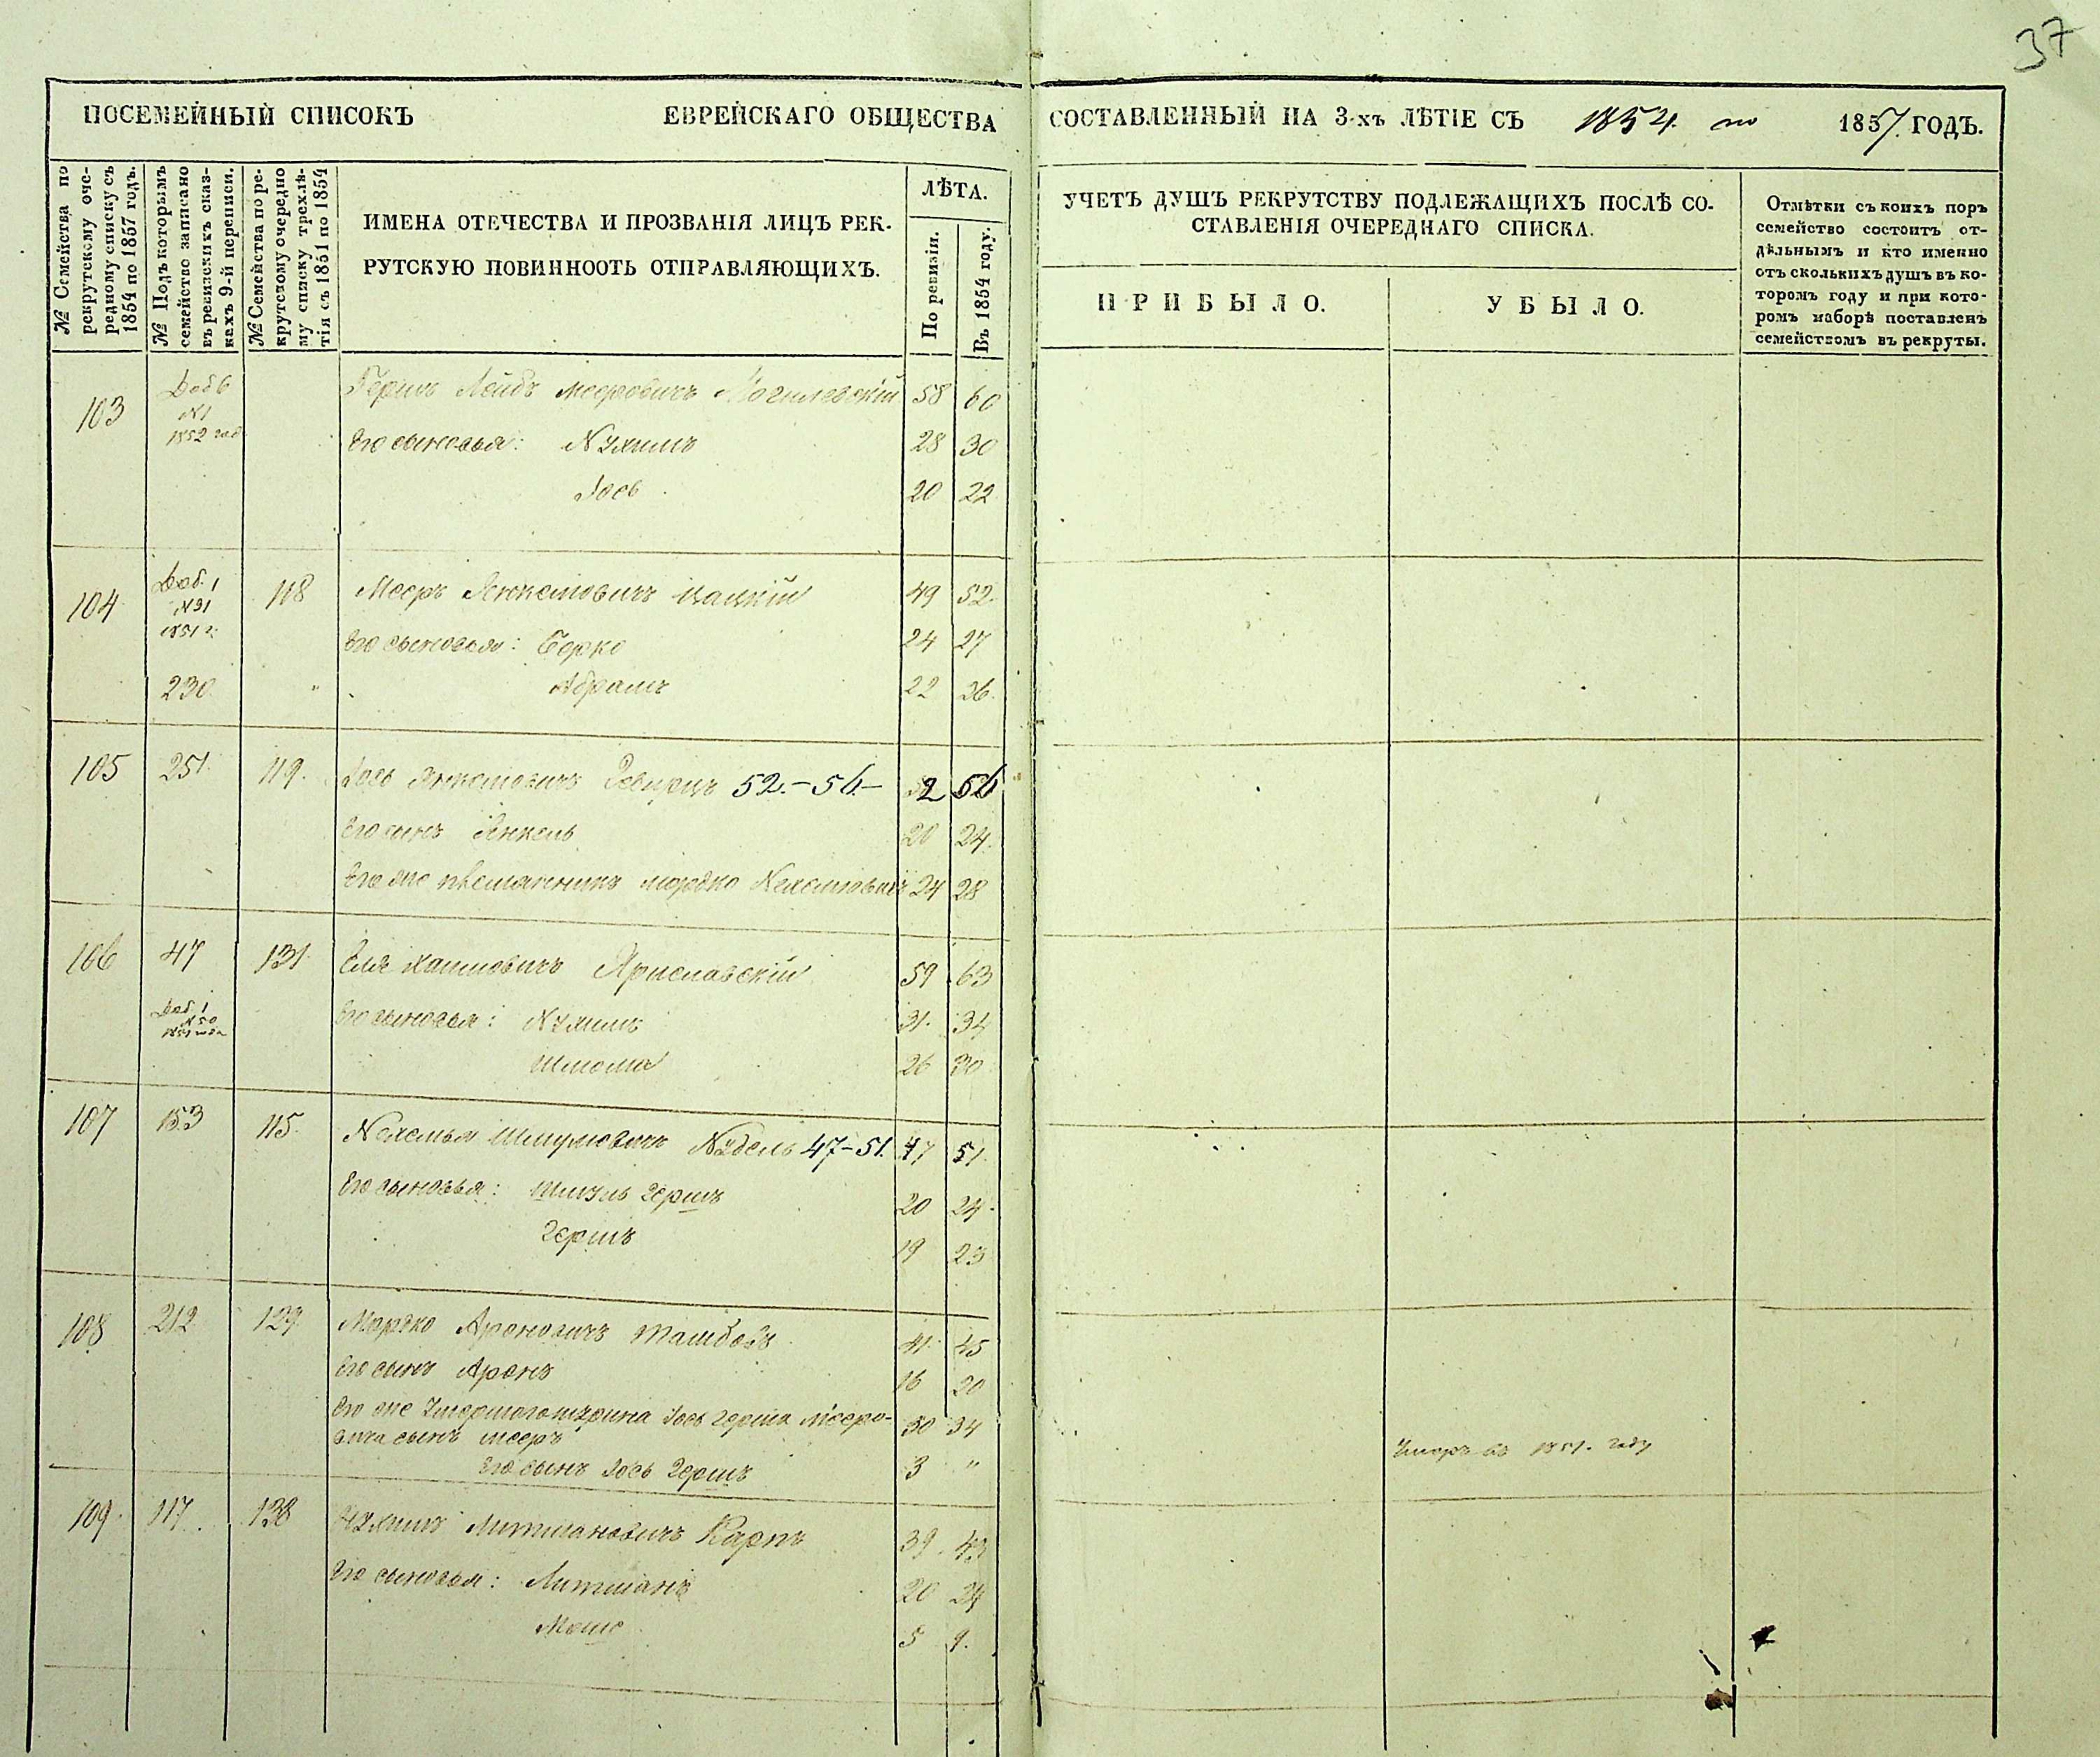 37
ПОСЕМЕЙНЫЙ СПИСОКЪ ЕВРЕЙСКАГО ОБЩЕСТВА СОСТАВЛЕННЫЙ НА 3-хъ ЛѢТІЕ СЪ 1854 по 1857 ГОДЪ.
№ Семейства по
рекрутскому оче-
редному списку съ
1854 по 1857 годъ.
№ Подъ которымъ
семейство записано
въ ревизскихъ сказ-
кахъ 9-й переписи.
№ Семейства по ре-
крутскому очередно
му списку трехлѣ-
тія съ 1851 по 1854
ИМЕНА ОТЕЧЕСТВА И ПРОЗВАНІЯ ЛИЦЪ РЕК-
РУТСКУЮ ПОВИННООТЬ ОТПРАВЛЯЮЩИХЪ.
ЛѢТА.
По ревизіи.
Въ 1854 году.
УЧЕТЪ ДУШЪ РЕКРУТСТВУ ПОДЛЕЖАЩИХЪ ПОСЛѢ СО-
СТАВЛЕНІЯ ОЧЕРЕДНАГО СПИСКА.
ПРИБЫЛО.
УБЫЛО.
Отмѣтки съ коихъ поръ
семейство состоитъ от-
дѣльнымъ и кто именно
отъ сколькихъ душъ въ ко-
торомъ году и при кото-
ромъ наборѣ поставленъ
семействомъ въ рекруты.
103 Доб 6 Гершъ Лейбъ Мееровичъ Могилевскій 58 60
№1
1852 год
Его сыновья: Нухимъ 28 30
Іось 20 22
104 Доб. 1 118 Мееръ Янкелювичъ Цацкій 49 52
№31
1851 г.
Его сыновья: Берко 24 27
230 " Абрамъ 22 26
105 251 119. Іось Янкелювичъ 52.-56- 52 56
Его сынъ Янкель 20 24.
Его же племянникъ Мордко 24 28
106 47 131. Еля Хаимовичъ Ярославскій 59 63
Доб. 1
№ 50
Его сыновья: Нухимъ 31. 34
Шлома 26 30
107 153 115. Нехемья Шмулювичъ Нудель 47-51. 47 51.
Его сыновья: Шмуль Гершъ 20 24.
Гершъ 19 23
108 212 129 Мордко Ароновичъ 41. 45
Его сынъ Аронъ 16 20
Его же умершаго шурина Іось Герша Мееро- 30 34
вича сынъ Мееръ
Его сынъ Іось Гершъ 3 "
Умеръ въ 1851. году
109. 117. 128 Нухимъ Литмановичъ Карпъ 39. 43
Его сыновья: Литманъ 20 24
Мошо 5 9.